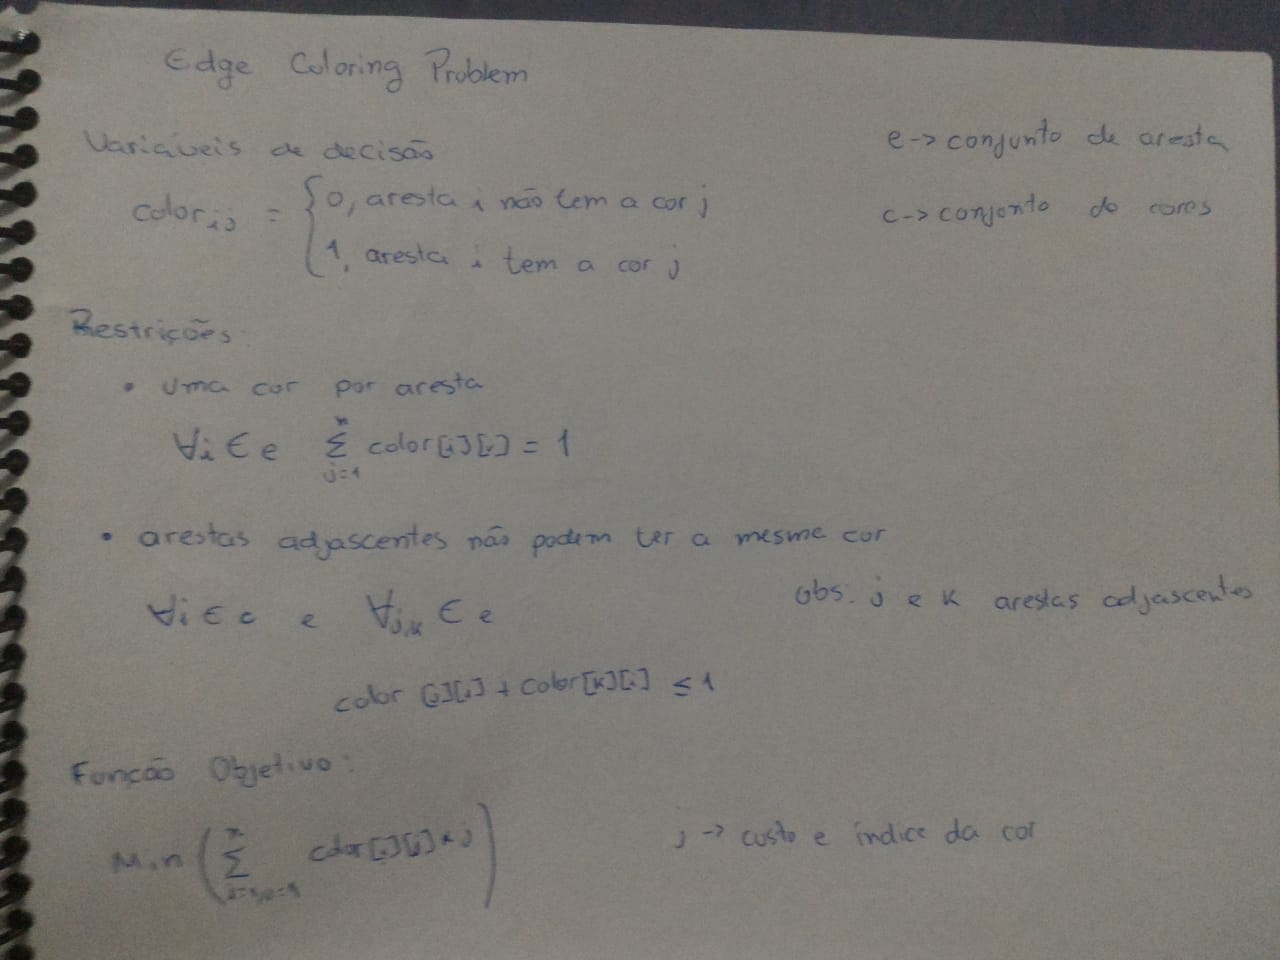 Edge Coloring Problem
Variáveis de decisão
e -> conjunto de aresta
color i,j = { 0, aresta i não tem a cor j
c -> conjonto de cores
1, aresta i tem a cor j
Restrições:
• Uma cor por aresta
∀i ∈ e ∑ j=1 n color[i][j] = 1
• arestas adjascentes não podem ter a mesma cor
∀i ∈ c e ∀j,k ∈ e
obs. j e k arestas adjascentes
color [j][i] + color[k][i] ≤ 1
Função Objetivo:
Min ( ∑ n color[i][j] * j )
j -> custo e índice da cor